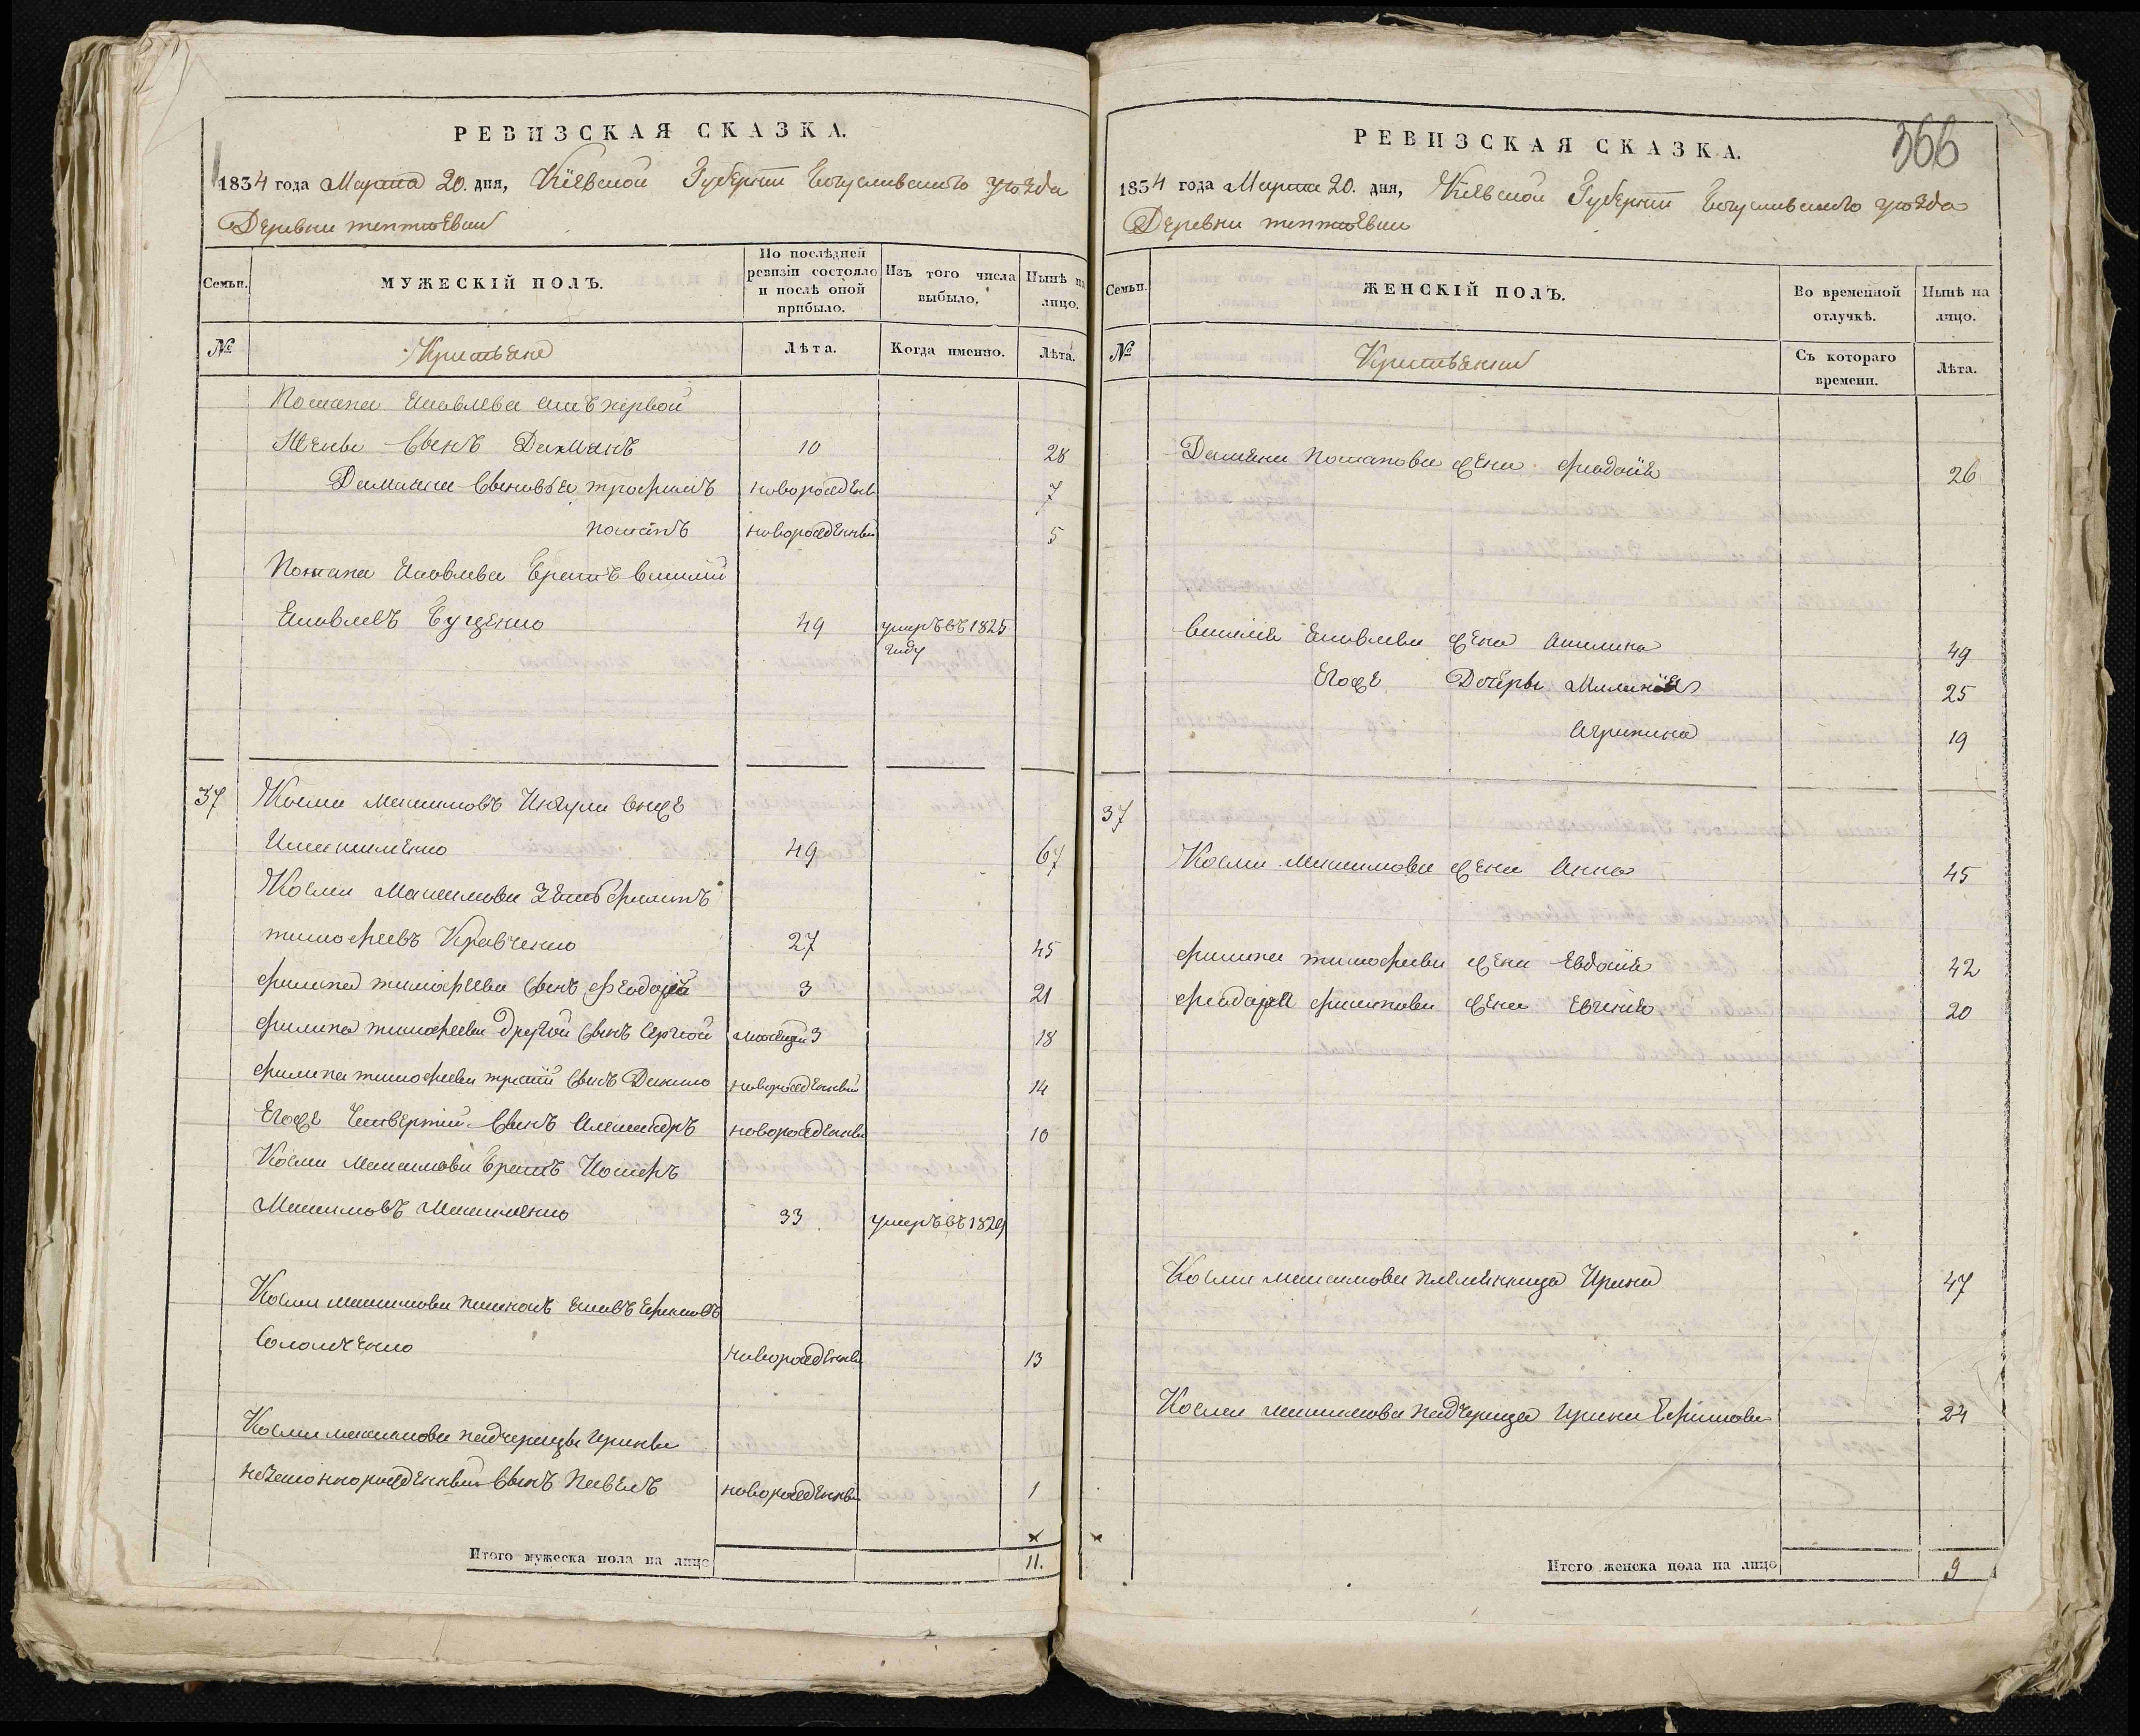 РЕВИЗСКАЯ СКАЗКА.
1834 года Марта 20. дня, Кіевской Губерніи Богуславскаго уѣзда
Деревни Тептіевки
Семьи.
МУЖЕСКІЙ ПОЛЪ.
По послѣдней ревизіи состояло и послѣ оной прибыло.
Изъ того числа выбыло,
Нынѣ на лицо.
№
Крестьяне
Лѣта.
Когда именно.
Лѣта.
Потапа Яковлева отъ первой
жены сынъ Дамианъ 10 28
Дамиана сыновья Трофимъ новорожден 7
Потапъ новорожденный 5
Потапа Яковлева братъ Василій
Яковлевъ Буценко 49 умеръ въ 1825 году
37 Косма Максимовъ онже
49 67
Космы Максимова зять Филипъ
Тимофеевъ Кравченко 27 45
Филипа Тимофеева сынъ Феодоръ 3 21
Филипа Тимофеева другой сынъ Сергей месяцей 3 18
Филипа Тимофеева третій сынъ Данило новорожденный 14
Егоже четвертій сынъ Александръ новорожденны 10
Космы Максимова братъ Иосифъ
Максимовъ Максименко 33 умеръ въ 1829
Космы Максимова Яковъ Ефимовъ
Соломченко новорожденны 13
Космы Максимова падчерицы Ирины
незаконнорожденный сынъ Павелъ новорожденны 1
Итого мужеска пола на лицо 11.
366
РЕВИЗСКАЯ СКАЗКА.
1834 года Марта 20. дня, Кіевской Губерніи Богуславскаго уѣзда
Деревни Тептіевки
Семьи.
ЖЕНСКІЙ ПОЛЪ.
Во временной отлучкѣ.
Нынѣ на лицо.
№
Крестьянки
Съ котораго времени.
Лѣта.
Дамиана Потапова жена Феодосія 26
Василія Яковлева жена Акилина 49
Егоже дочеры Меланія 25
Агрипина 19
37
Космы Максимова жена Анна 45
Филипа Тимофеева жена Евдокія 42
Феодора Филипова жена Евгенія 20
Космы Максимова племянница Ирина 47
Космы Максимова падчерица Ирина Ефимова 24
Итого женска пола на лицо 9